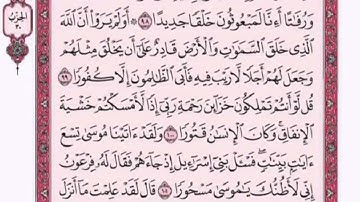 وَرُفَٰتًا أَءِنَّا لَمَبْعُوثُونَ خَلْقًا جَدِيدًا ٩٨ ۞ أَوَلَمْ يَرَوْا۟ أَنَّ ٱللَّهَ
ٱلَّذِى خَلَقَ ٱلسَّمَٰوَٰتِ وَٱلْأَرْضَ قَادِرٌ عَلَىٰٓ أَن يَخْلُقَ مِثْلَهُمْ
وَجَعَلَ لَهُمْ أَجَلًا لَّا رَيْبَ فِيهِ فَأَبَى ٱلظَّٰلِمُونَ إِلَّا كُفُورًا ٩٩
قُل لَّوْ أَنتُمْ تَمْلِكُونَ خَزَآئِنَ رَحْمَةِ رَبِّىٓ إِذًا لَّأَمْسَكْتُمْ خَشْيَةَ
ٱلْإِنفَاقِ وَكَانَ ٱلْإِنسَٰنُ قَتُورًا ١٠٠ وَلَقَدْ ءَاتَيْنَا مُوسَىٰ تِسْعَ
ءَايَٰتٍۭ بَيِّنَٰتٍ فَسْـَٔلْ بَنِىٓ إِسْرَٰٓءِيلَ إِذْ جَآءَهُمْ فَقَالَ لَهُۥ فِرْعَوْنُ
إِنِّى لَأَظُنُّكَ يَٰمُوسَىٰ مَسْحُورًا ١٠١ قَالَ لَقَدْ عَلِمْتَ مَآ أَنزَلَ
الحزب
٣٠